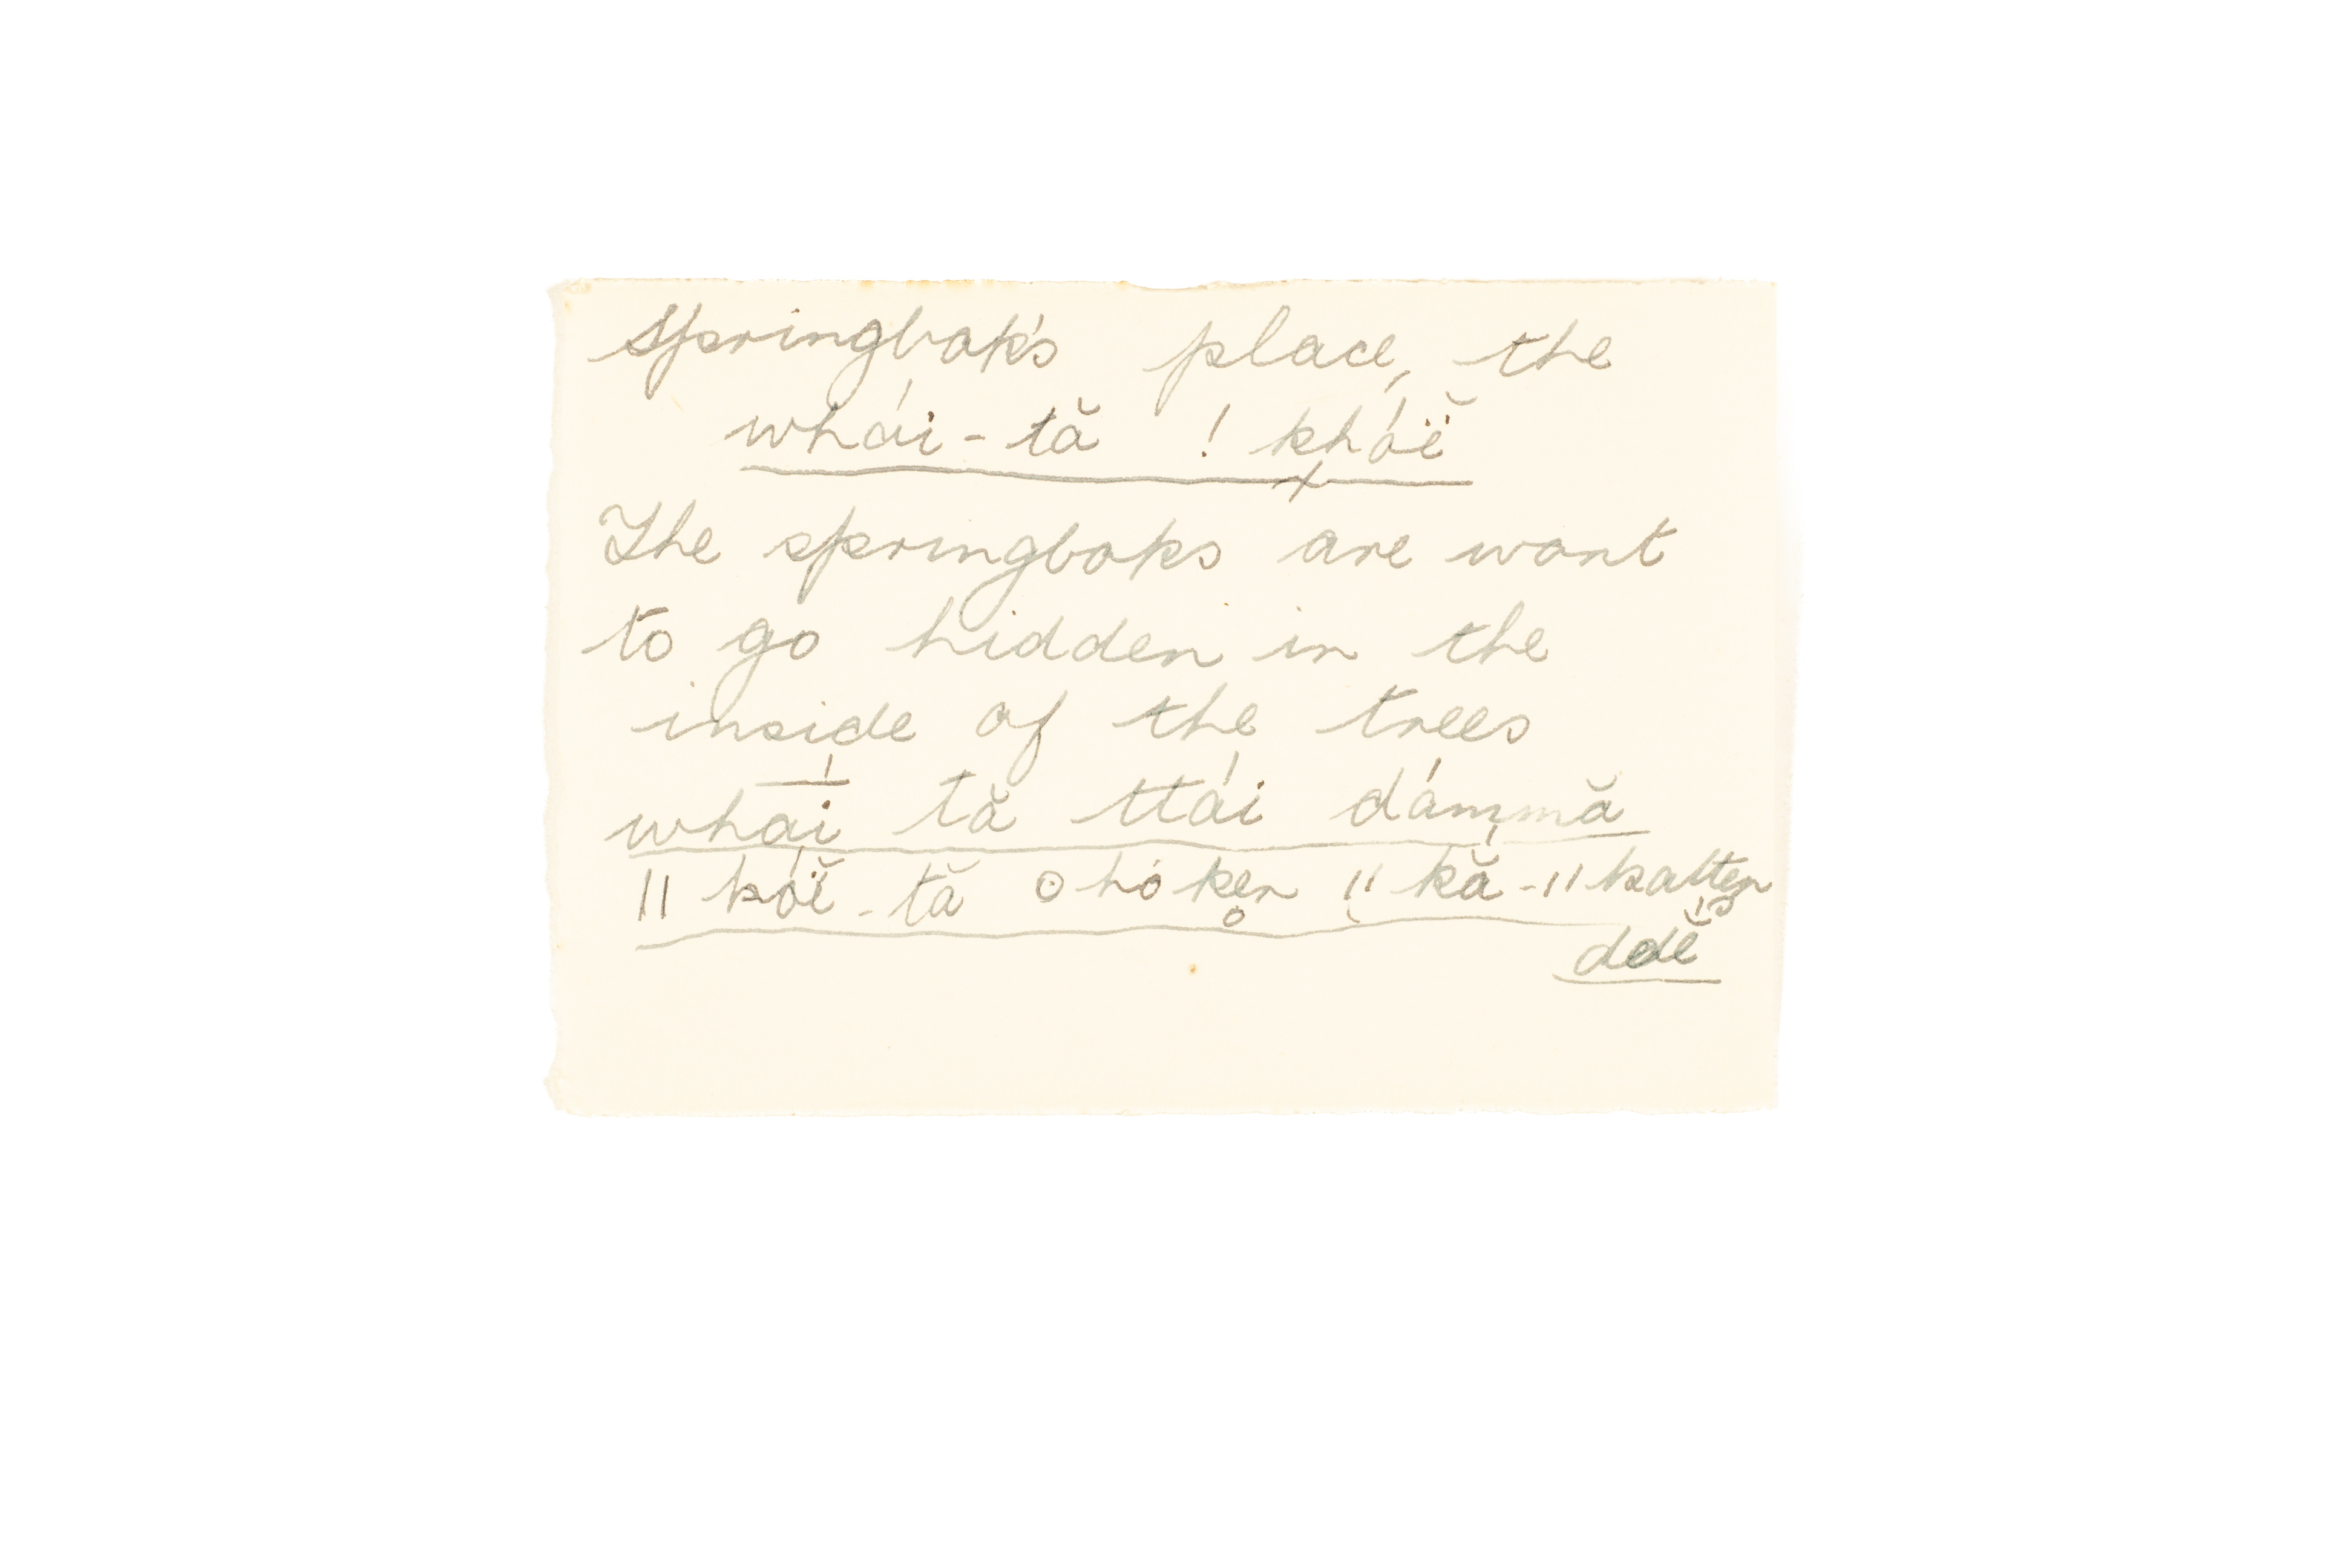 Springbok's place, the
whái-tă !khóĭ
The springboks are wont
to go hidden in the
inside of the trees
whāí tă ttái dámmă
ǁkóĭ-tă ʘhóken ǁkă-ǁkatten
ddĕ